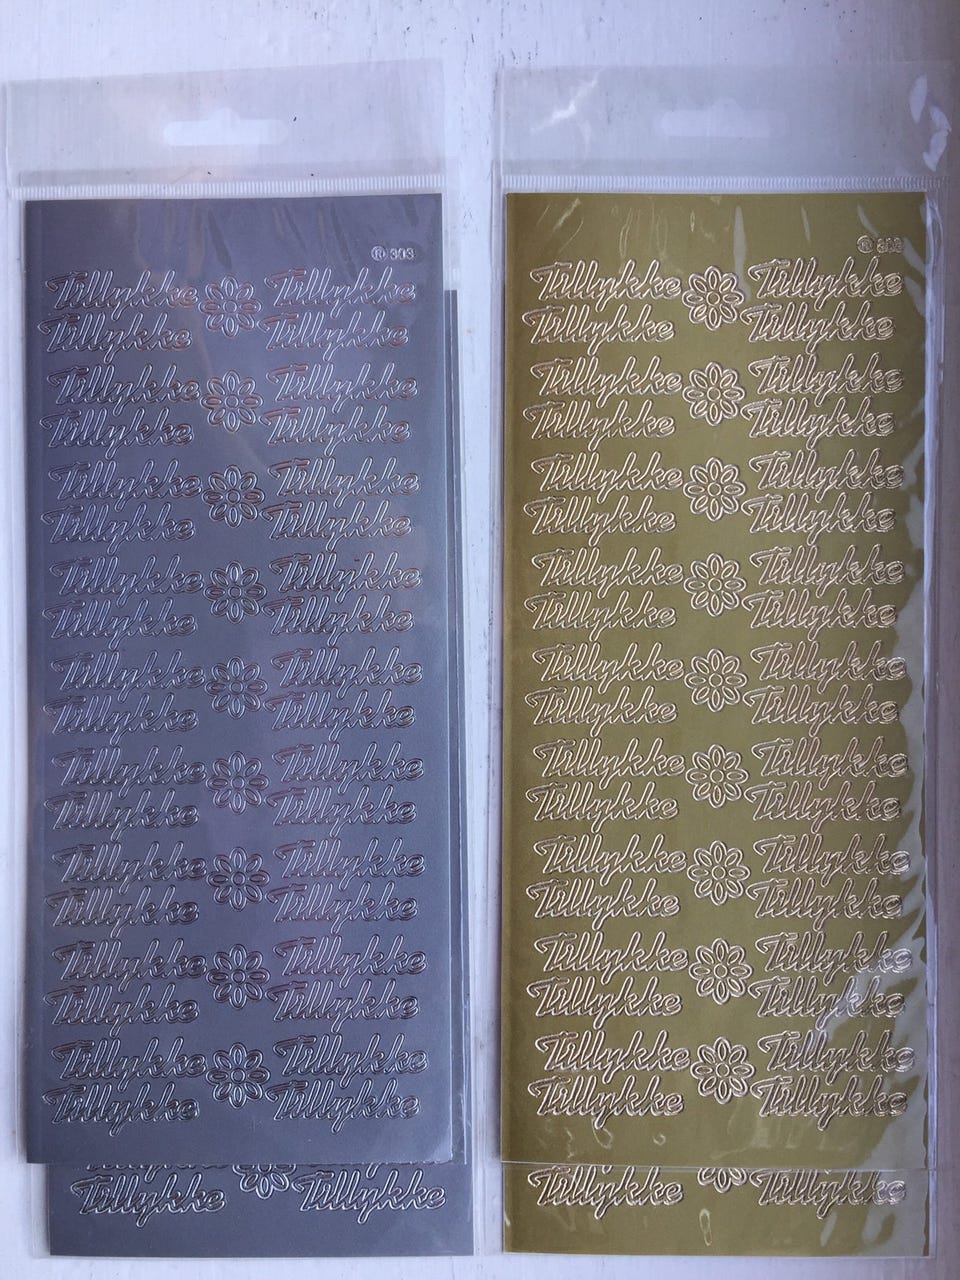 ® 303
Tillykke Tillykke
Tillykke Tillykke
Tillykke Tillykke
Tillykke Tillykke
Tillykke Tillykke
Tillykke Tillykke
Tillykke Tillykke
Tillykke Tillykke
Tillykke Tillykke
Tillykke Tillykke
Tillykke Tillykke
Tillykke Tillykke
Tillykke Tillykke
Tillykke Tillykke
Tillykke Tillykke
Tillykke Tillykke
Tillykke Tillykke
Tillykke Tillykke
Tillykke Tillykke
® 303
Tillykke Tillykke
Tillykke Tillykke
Tillykke Tillykke
Tillykke Tillykke
Tillykke Tillykke
Tillykke Tillykke
Tillykke Tillykke
Tillykke Tillykke
Tillykke Tillykke
Tillykke Tillykke
Tillykke Tillykke
Tillykke Tillykke
Tillykke Tillykke
Tillykke Tillykke
Tillykke Tillykke
Tillykke Tillykke
Tillykke Tillykke
Tillykke Tillykke
Tillykke Tillykke